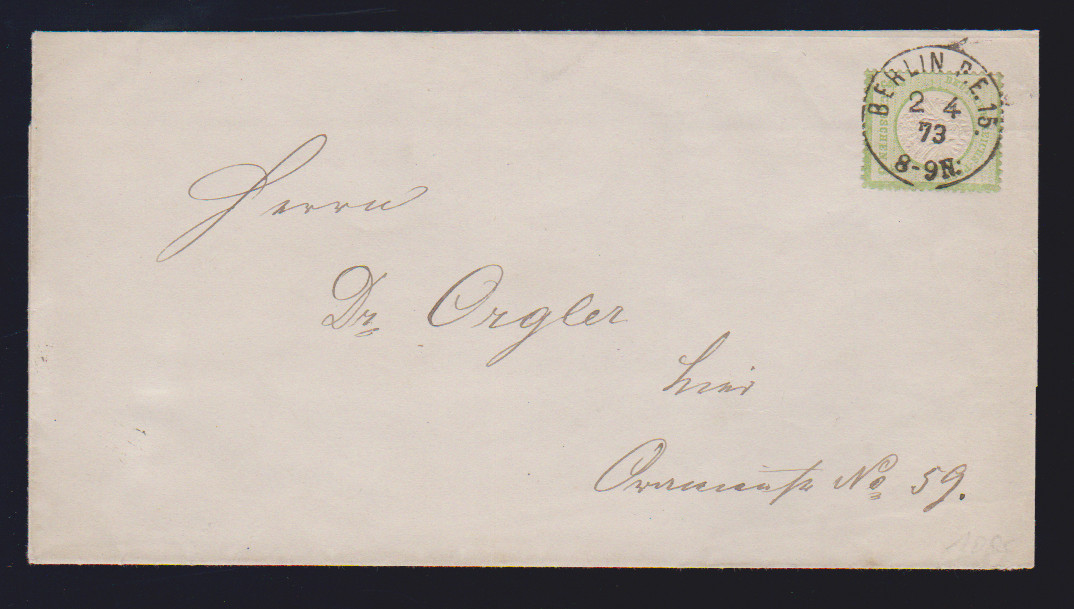 BERLIN P.E. 15.
2 4
73
8-9N.
Herrn
Dr. Orgler
hier
No 59.